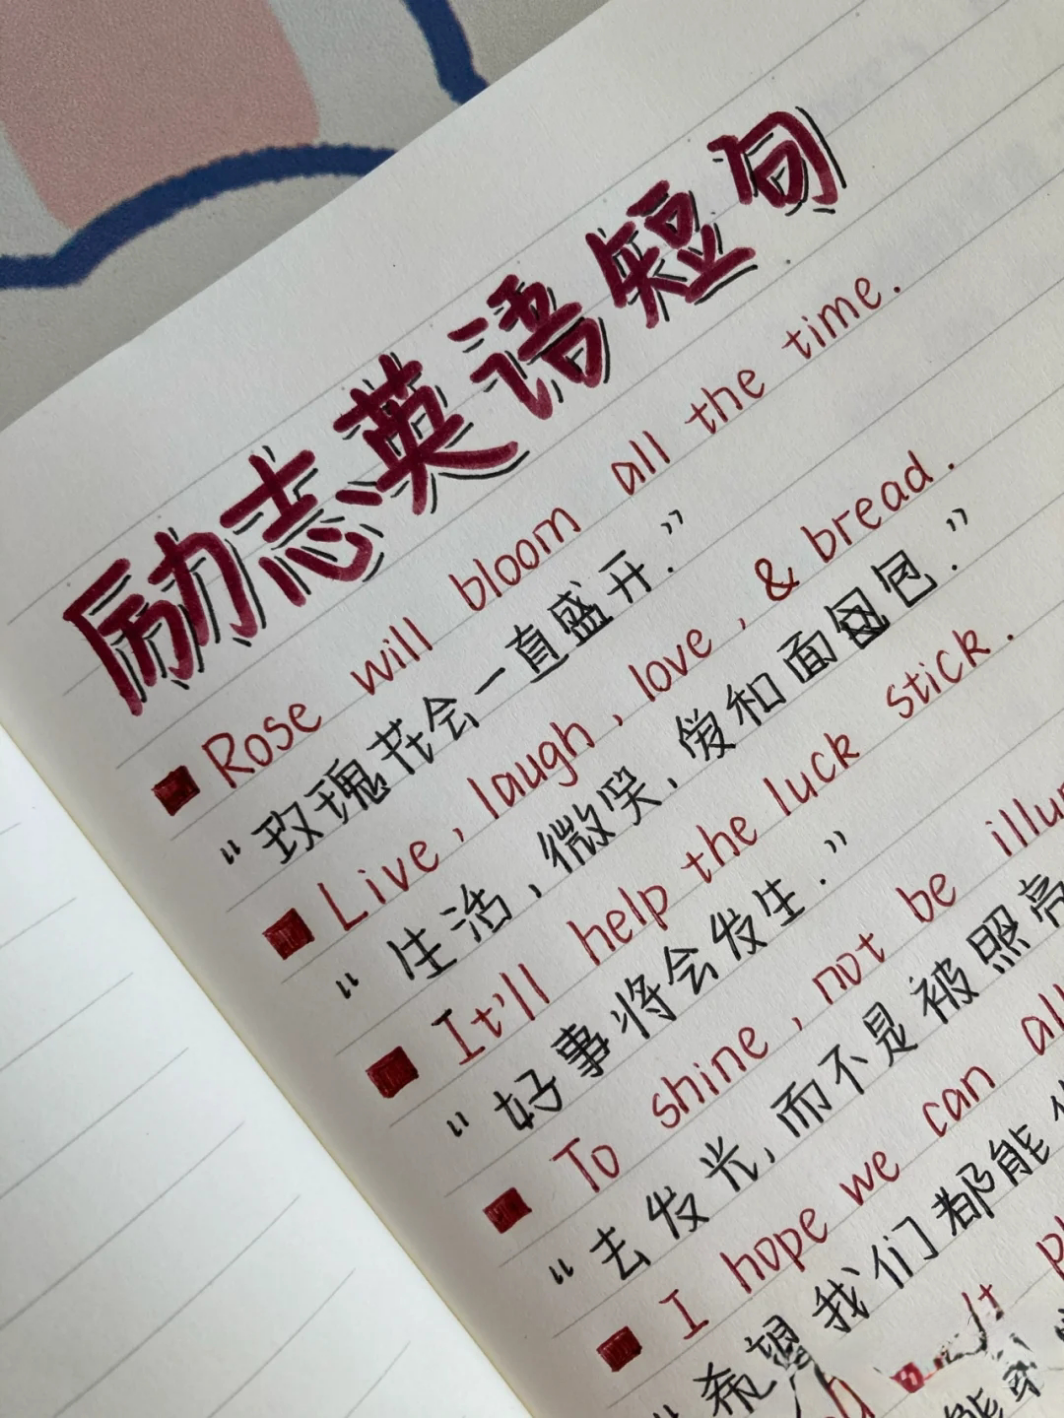 励志英语短句
Rose will bloom all the time.
“玫瑰花会一直盛开.”
Live, laugh, love, & bread.
“生活,微笑,爱和面包.”
It'll help the luck stick.
“好事将会发生.”
To shine, not be
“去发光,而不是被照亮
I hope we can
“希望我们都能